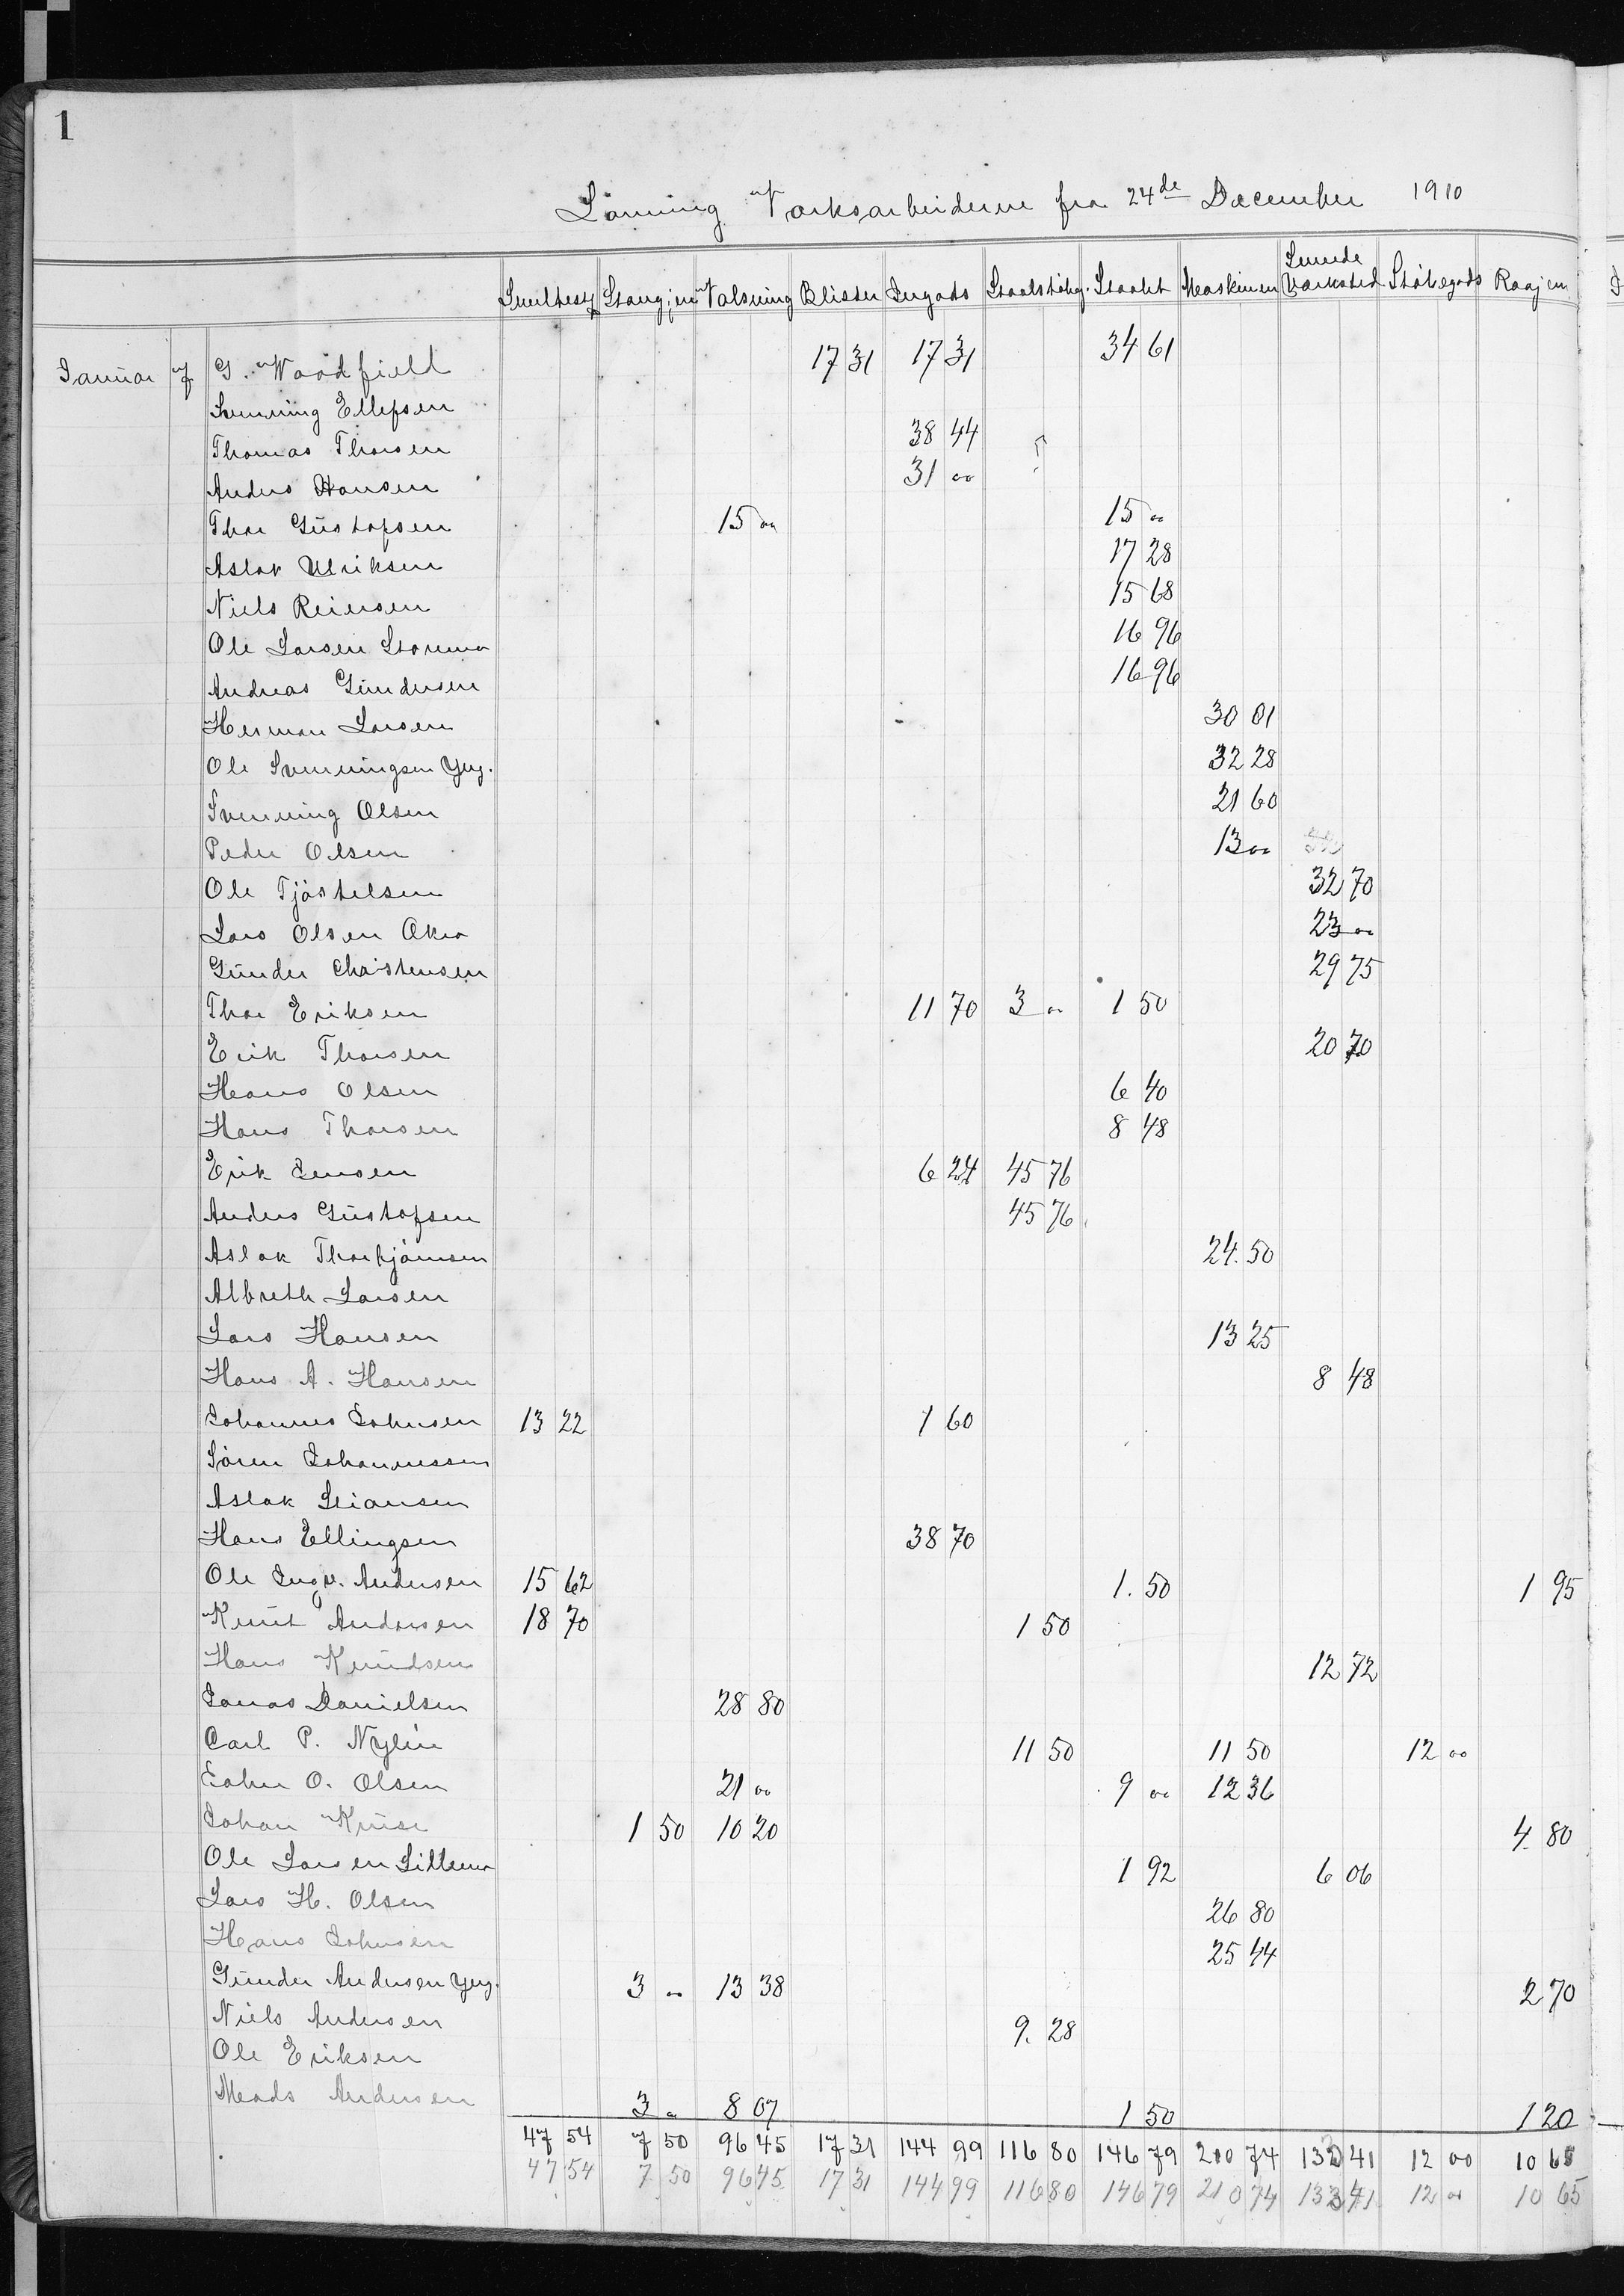 1
Lönning Værksarbeiderne fra 24de December 1910
Smeltest. Stangjern Valsning Blister Ingods Staalstöbg. Staalet Maskinen Smede Værksted Stöbegods Raajern
Januar 7 G. Woodfield 17 31 17 31 34 61
Svenning Ellefsen
Thomas Thorsen 38 44
Anders Hansen 31 00
Thor Gustafsen 15 00 15 00
Aslak Ulriksen 17 28
Niels Reiersen 15 68
Ole Larsen Storemo 16 96
Andreas Gundersen 16 96
Herman Larsen 30 01
Ole Svenningsen Yng. 32 28
Svenning Olsen 21 60
Peder Olsen 13 00
Ole Tjöstelsen 32 70
Lars Olsen Aker 23 00
Gunder Christensen 29 75
Thor Eriksen 11 70 3 00 1 50
Erik Thorsen 20 70
Hans Olsen 6 40
Hans Thorsen 8 48
Erik Jensen 6 24 45 76
Anders Gustafsen 45 76
Aslak Thorbjörnsen 24.50
Albreth Larsen
Lars Hansen 13 25
Hans A. Hansen 8 48
Johannes Johnsen 13 22 1 60
Sören Johannessen
Aslak Stiansen
Hans Ellingsen 38 70
Ole Ingv. Andersen 15 62 1.50 1 95
Knut Andersen 18 70 1 50
Hans Knudsen 12 72
Jonas Danielsen 28 80
Carl P. Nylin 11 50 11 50 12 00
John O. Olsen 21 00 9 00 12 36
Johan Kruse 1 50 10 20 4 80
Ole Larsen Lillemo 1 92 6 06
Lars H. Olsen 26 80
Hans Johnsen 25 44
Gunder Andersen Yng. 3 00 13 38 2 70
Niels Andersen 9.28
Ole Eriksen
Mads Andersen 3 00 8 07 1 50 1 20
47 54 7 50 96 45 17 31 144 99 116 80 146 79 210 74 133 41 12 00 10 65
47 54 7 50 96 45 17 31 144 99 116 80 146 79 210 74 133 41 12 00 10 65